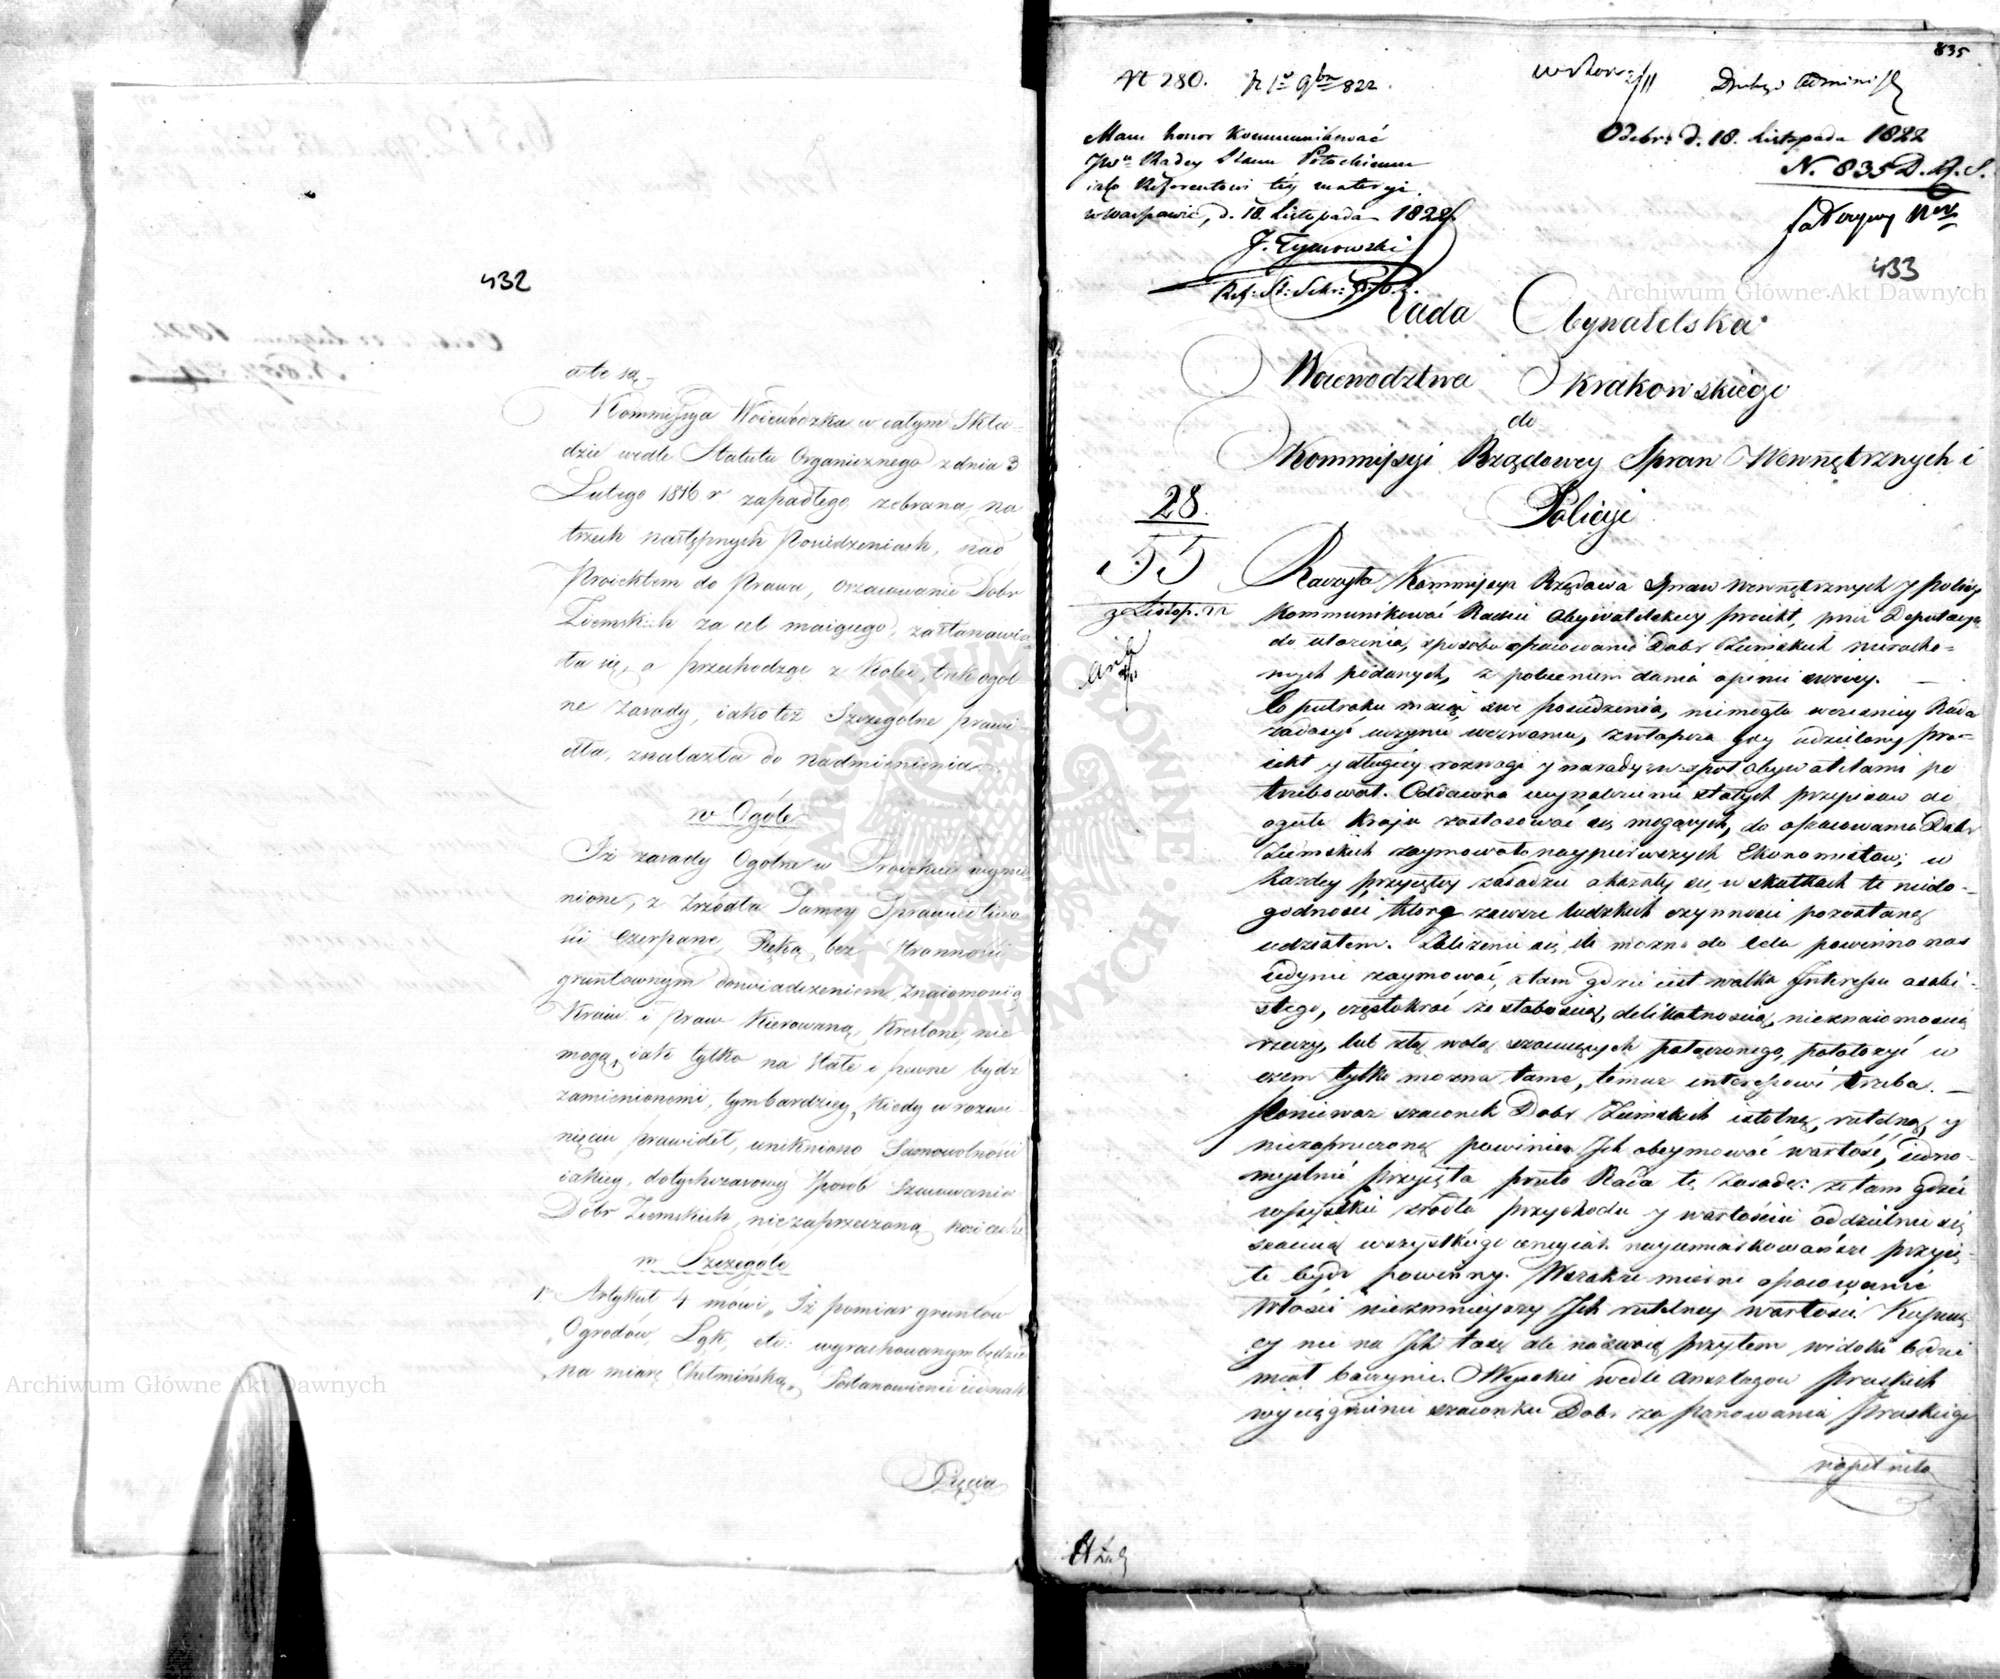 432
ile są
Kommissya Woiewódzka w całym Skła-
dzie wedle Statutu Organicznego z dnia 3
Lutego 1816 r zapadłego zebrana, na
trzech następnych Posiedzeniach, nad
Proiektem do Prawa, oszacowanie Dóbr
Ziemskich za cel maiącego, zastanawia
ła się, a przechodząc z Kolei, tak ogól
ne zasady, iako też Szczegolne prawi-
dła, znalazła do nadmienienia.
w Ogóle
Iż zasady Ogólne w Proiekcie wymie
nione, z źrzódła Samey Sprawiedliwo
ści czerpane, Ręką bez stronności
gruntownym doswiadczeniem, znaiomością
Kraiu i praw Kierowaną, Kreslone, nie
mogą, iak tylko na stałe i pewne bydź
zamienionemi, tymbardziey, kiedy w rozwi
nięciu prawideł, unikniono Samowolności
iakiey, dotychczasowy Sposób Szacowania
Dóbr Ziemskich, niezaprzeczoną
w Szczególe
1. Artykuł 4 mówi „Iż pomiar gruntów
„Ogrodów, Łąk, etc: wyrachowanym będzie
„na miarę Chełmińską„ Postanowienie iednak
Xięcia
835
N 280.
Drukiego
Mam honor kommunikować
JWu Radcy Stanu Potockiemu
iako Referentowi téy materyi
w Warszawie, d. 18. Listopada 1822
J. Tymowski
Ref: St: Sekr:
Odebr: d. 18. Listopada 1822
N. 835 D.
433
Archiwum Główne Akt Dawnych
Rada Obywatelska
Woiewodztwa Krakowskiego
do
Kommissyi Rządowey Spraw Wewnętrznych i
Policyi
28.
55
Listop.
Raczyła Kommissya Rządowa Spraw Wewnętrznych y Policyi
kommunikować Radzie Obywatelskiey proiekt, przez Deputacyą
do ułożenia, sposobu oszacowania Dobr Ziemskich nierucho-
mych podanych, z poleceniem dania opinii swoiey.
Co półroku maiąc swe posiedzenia, niemogła wcześniey Rada
zadosyć uczynić wezwaniu, zwłaszcza gdy udzielony pro-
iekt y długiey rozwagi y narady w spół obywatelami po
trzebował. Oddawna wynalezienie stałych przepisow do
ogułu Kraju zastosować się mogących, do oszacowania Dobr
Ziemskich zaymowało naypierwszych Ekonomistow; w
każdey przyiętey zasadzie okazały się w skutkach te niedo-
godności które zawsze ludzkich czynności pozostaną
udziałem. Zbliżenie się ile można do celu powinno nas
iedynie zaymować, a tam gdzie iest walka Interessu osobi-
stego, częstokroć ze słabością, delikatnością, nieznaiomością
rzeczy, lub złą wolą szacuiących połączonego, położyć w
czem tylko można tamę, temuż interessowi trzeba.
Ponieważ szacunek Dobr Ziemskich istotną, rzetelną, y
niezaprzeczoną powinien Jch obeymować wartość, iedno-
myślnie przyięła przeto Rada tę Zasadę: że tam gdzie
wszystkie źrodła przychodu y wartości oddzielnie się
szacuią wszystkiego ceny iak nayumiarkowańsze przyię-
te bydź powinny. Wszakże mierne oszacowanie
Włości niezmnieyszy Jch rzetelney wartości. Kupuią
cy nie na Jch taxę ale na przytem widoki będzie
miał baczenie. Wysokie wedle Anszlagow Pruskich
wyciągnienie szacunku Dobr za panowania Pruskiego
napełniło
Archiwum Główne Akt Dawnych
ARCHIWUM GŁÓWNE AKT DAWNYCH